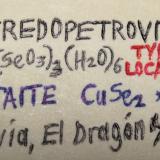 REDOPETROVI
(SeO3)3(H2O)6 TY
LOCA
TAITE CuSe2
via, El Dragón